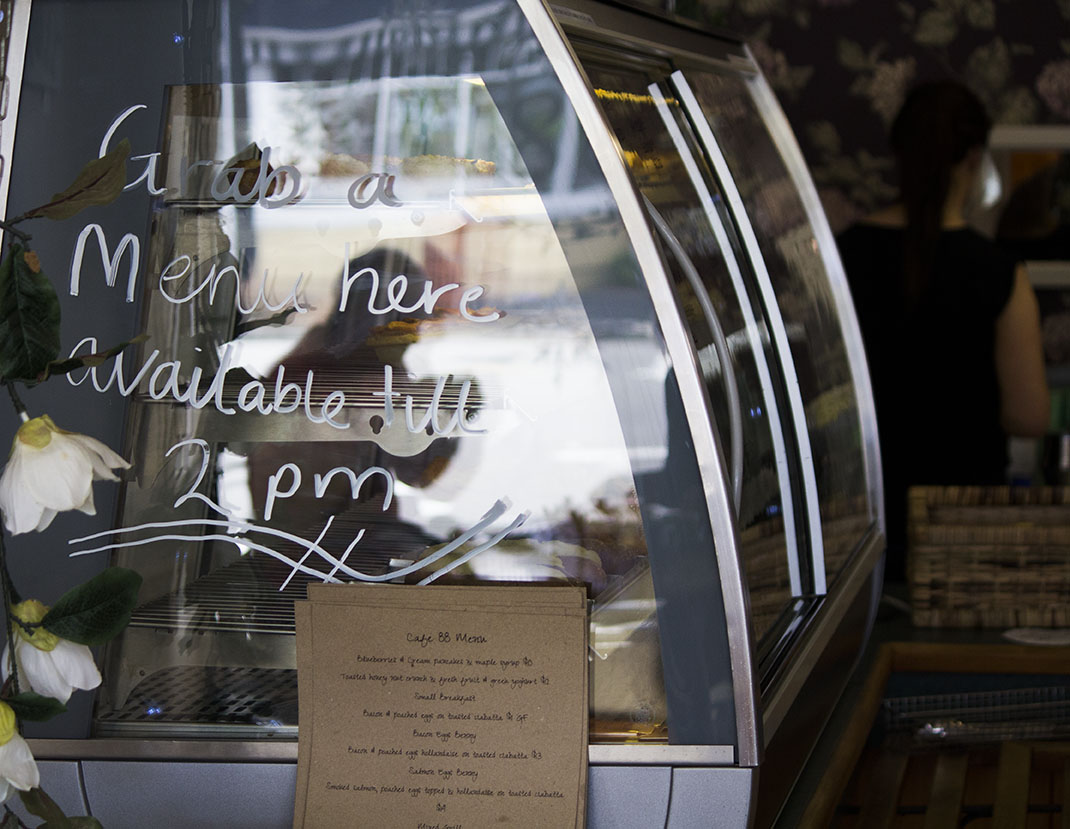 Grab a
Menu here
available till
2 pm
Cafe 88 Menu
Blueberries & Cream pancakes & maple syrup
Toasted honey nut crunch & fresh fruit & greek yoghurt
Small Breakfast
Bacon & poached eggs on toasted ciabatta GF
Bacon Eggs Benny
Bacon & poached eggs hollandaise on toasted ciabatta
Salmon Eggs Benny
Smoked salmon, poached eggs topped & hollandaise on toasted ciabatta
Mixed Grill